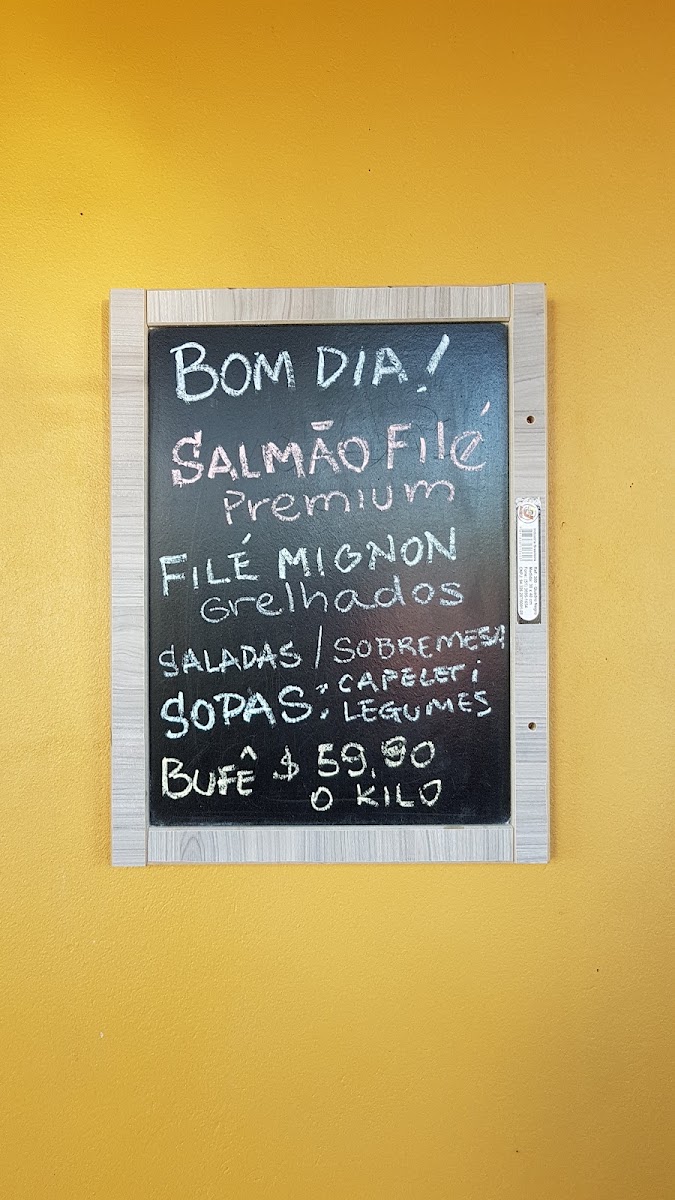 BOM DIA!
SALMÃO FILÉ
Premium
FILÉ MIGNON
Grelhados
SALADAS / SOBREMESA
SOPAS: CAPELETi
LEGUMES
BUFÊ $ 59,90
O KILO